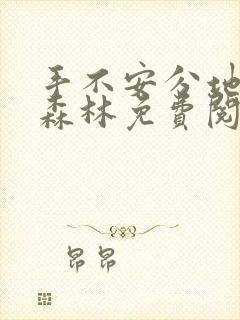 手不安分地
森林免费阅
昂昂